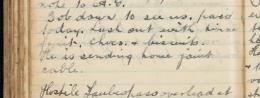 note to A.C.
Bob down to see us. pass
today. Lash out with tinned
fruit, choc. & biscuits.
He is sending home joint
cable.
Hostile Taubes pass overhead at